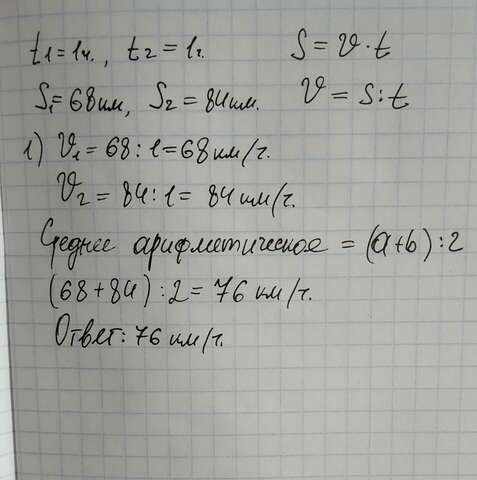 t1=1ч., t2=1ч. S=v·t
S1=68км, S2=84км. v=s:t
1) v1=68:1=68км/ч.
v2=84:1=84км/ч.
Среднее арифметическое=(a+b):2
(68+84):2=76 км/ч.
Ответ: 76 км/ч.